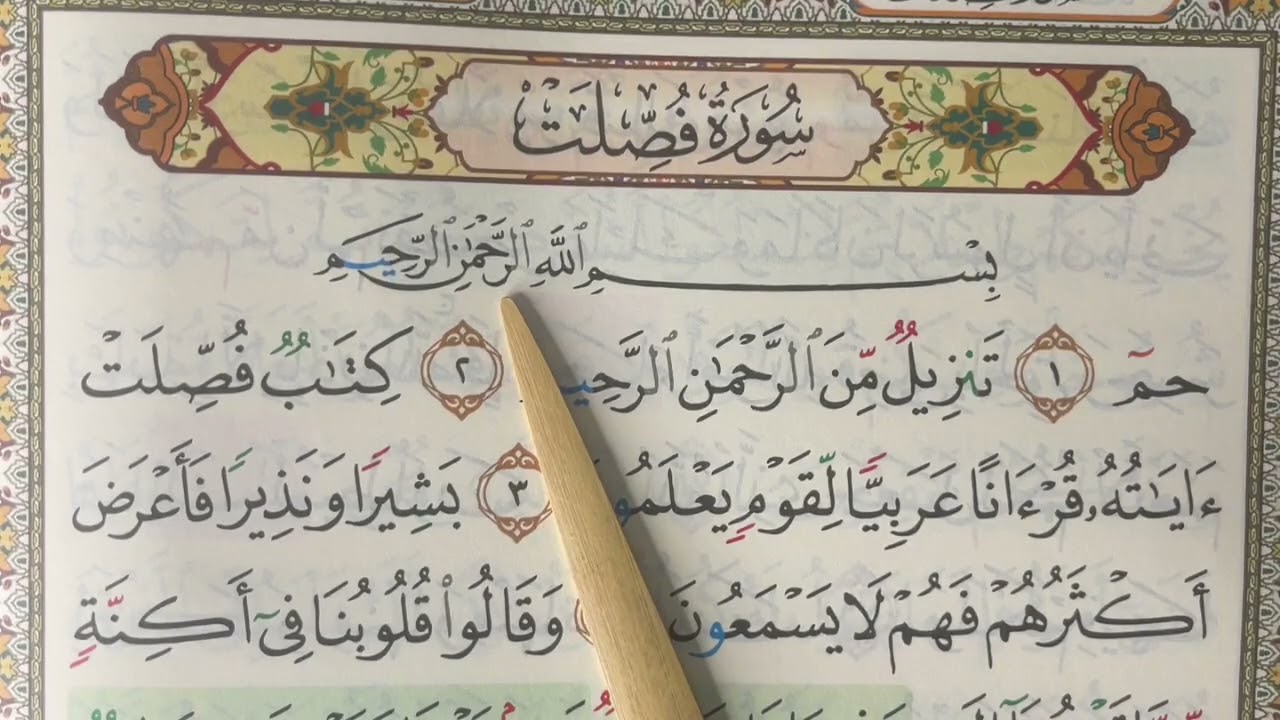 سُورَةُ فُصِّلَتْ
بِسْمِ ٱللَّهِ ٱلرَّحْمَٰنِ ٱلرَّحِيمِ
حمٓ ١ تَنزِيلٌ مِّنَ ٱلرَّحْمَٰنِ ٱلرَّحِي ٢ كِتَٰبٌ فُصِّلَتْ
ءَايَٰتُهُۥ قُرْءَانًا عَرَبِيًّا لِّقَوْمٍ يَعْلَمُو ٣ بَشِيرًا وَنَذِيرًا فَأَعْرَضَ
أَكْثَرُهُمْ فَهُمْ لَا يَسْمَعُونَ وَقَالُوا۟ قُلُوبُنَا فِىٓ أَكِنَّةٍ